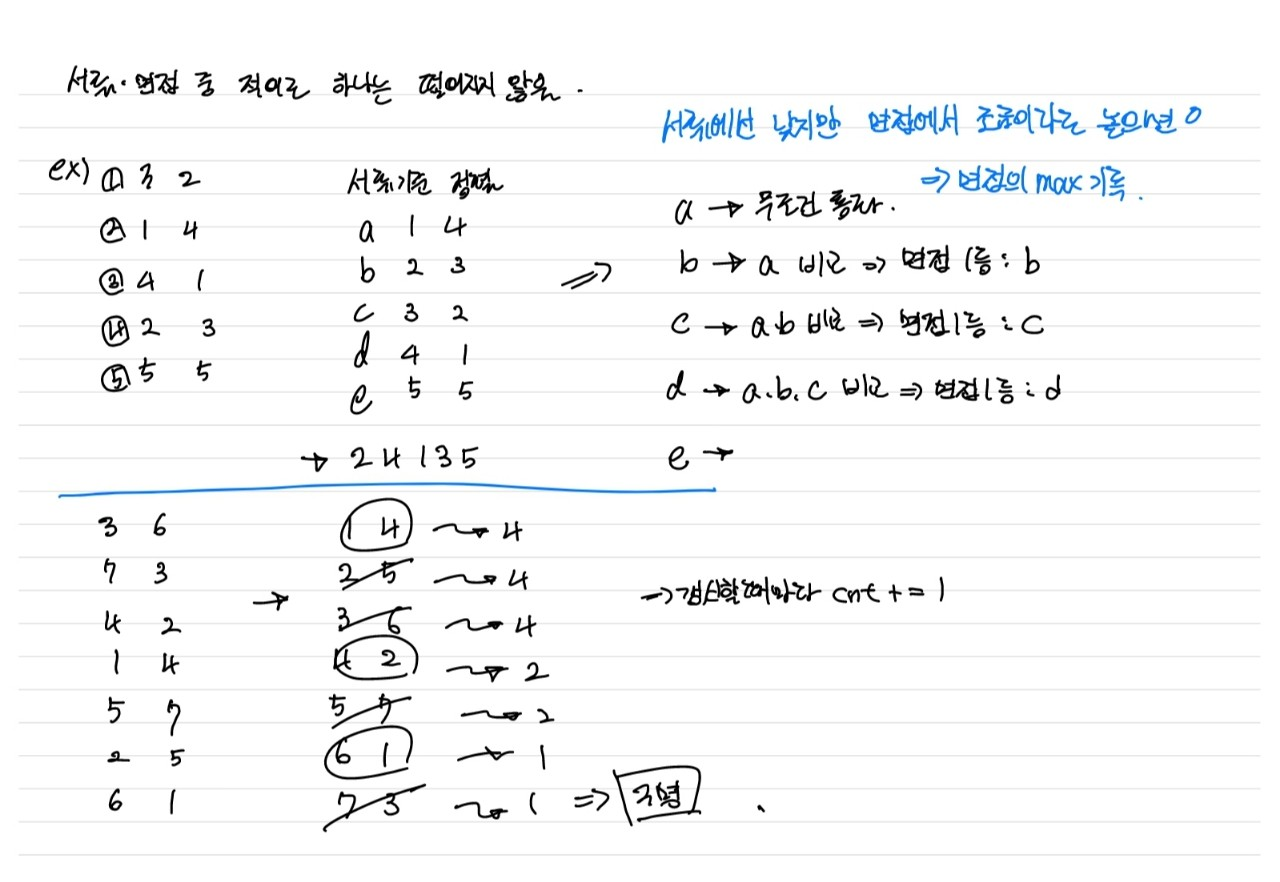 서류·면접 중 적어도 하나는 떨어지지 않음.
서류에선 낮지만 면접에서 조금이라도 높으면 O
⇒ 면접의 max 기록.
ex) ① 3 2
② 1 4
③ 4 1
④ 2 3
⑤ 5 5
서류기준 정렬
a 1 4
b 2 3
c 3 2
d 4 1
e 5 5
→ 2 4 1 3 5
⇒
a → 무조건 통과.
b → a 비교 ⇒ 면접 1등 : b
c → a.b 비교 ⇒ 면접 1등 : c
d → a.b.c 비교 ⇒ 면접 1등 : d
e →
3 6
7 3
4 2
1 4
5 7
2 5
6 1
→
1 4 → 4
2 5 → 4
3 6 → 4
4 2 → 2
5 7 → 2
6 1 → 1
7 3 → 1 ⇒ 3명
→ 갱신할때마다 cnt += 1